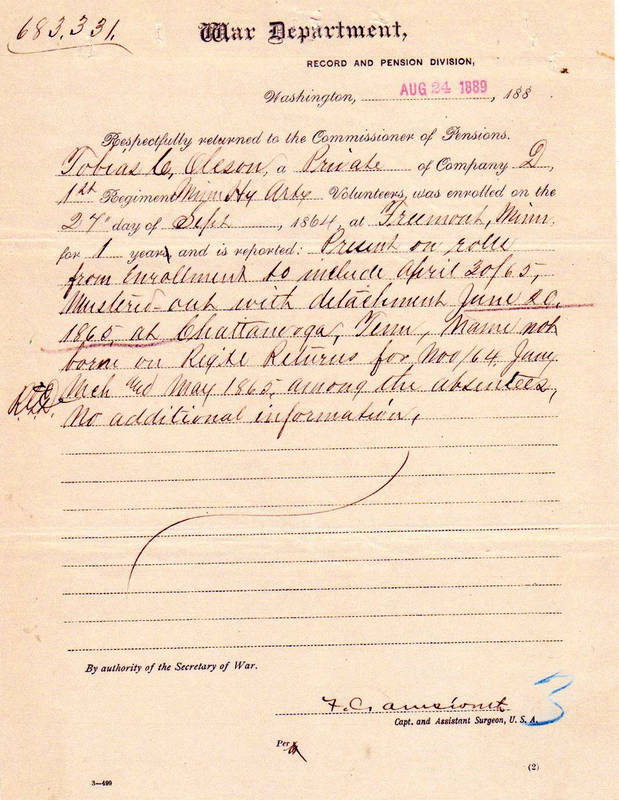 683.331.
War Department,
RECORD AND PENSION DIVISION,
Washington, AUG 24 1889, 188
Respectfully returned to the Commissioner of Pensions.
Tobias C, Oleson, a Private of Company D,
1st Regiment Minn Hy Arty Volunteers, was enrolled on the
27" day of Sept, 1864, at Freemont, Minn.
for 1 year, and is reported: Present on rolls
from enrollment to include April 30/65,
Mustered-out with detachment June 20,
1865, at Chattanooga, Tenn, Name not
born on Regtl Returns for Nov/64 Jany
Mch and May 1865, among the absentees,
No additional information,
By authority of the Secretary of War.
F. C. Ainsworth
Capt. and Assistant Surgeon, U. S. A.
3
Per
3—499
(2)